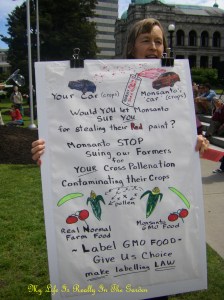 Your Car (crops)
Monsanto's car (crops)
Would you let Monsanto
Sue YOU
for stealing their Red paint?
Monsanto STOP
Suing our Farmers
for
YOUR Cross Pollenation
Contaminating their Crops
pollen
Real Normal
Farm Food
Monsanto
GMO Food
~ Label GMO FOOD ~
Give Us Choice
make labelling LAW
My Life Is Really In The Garden